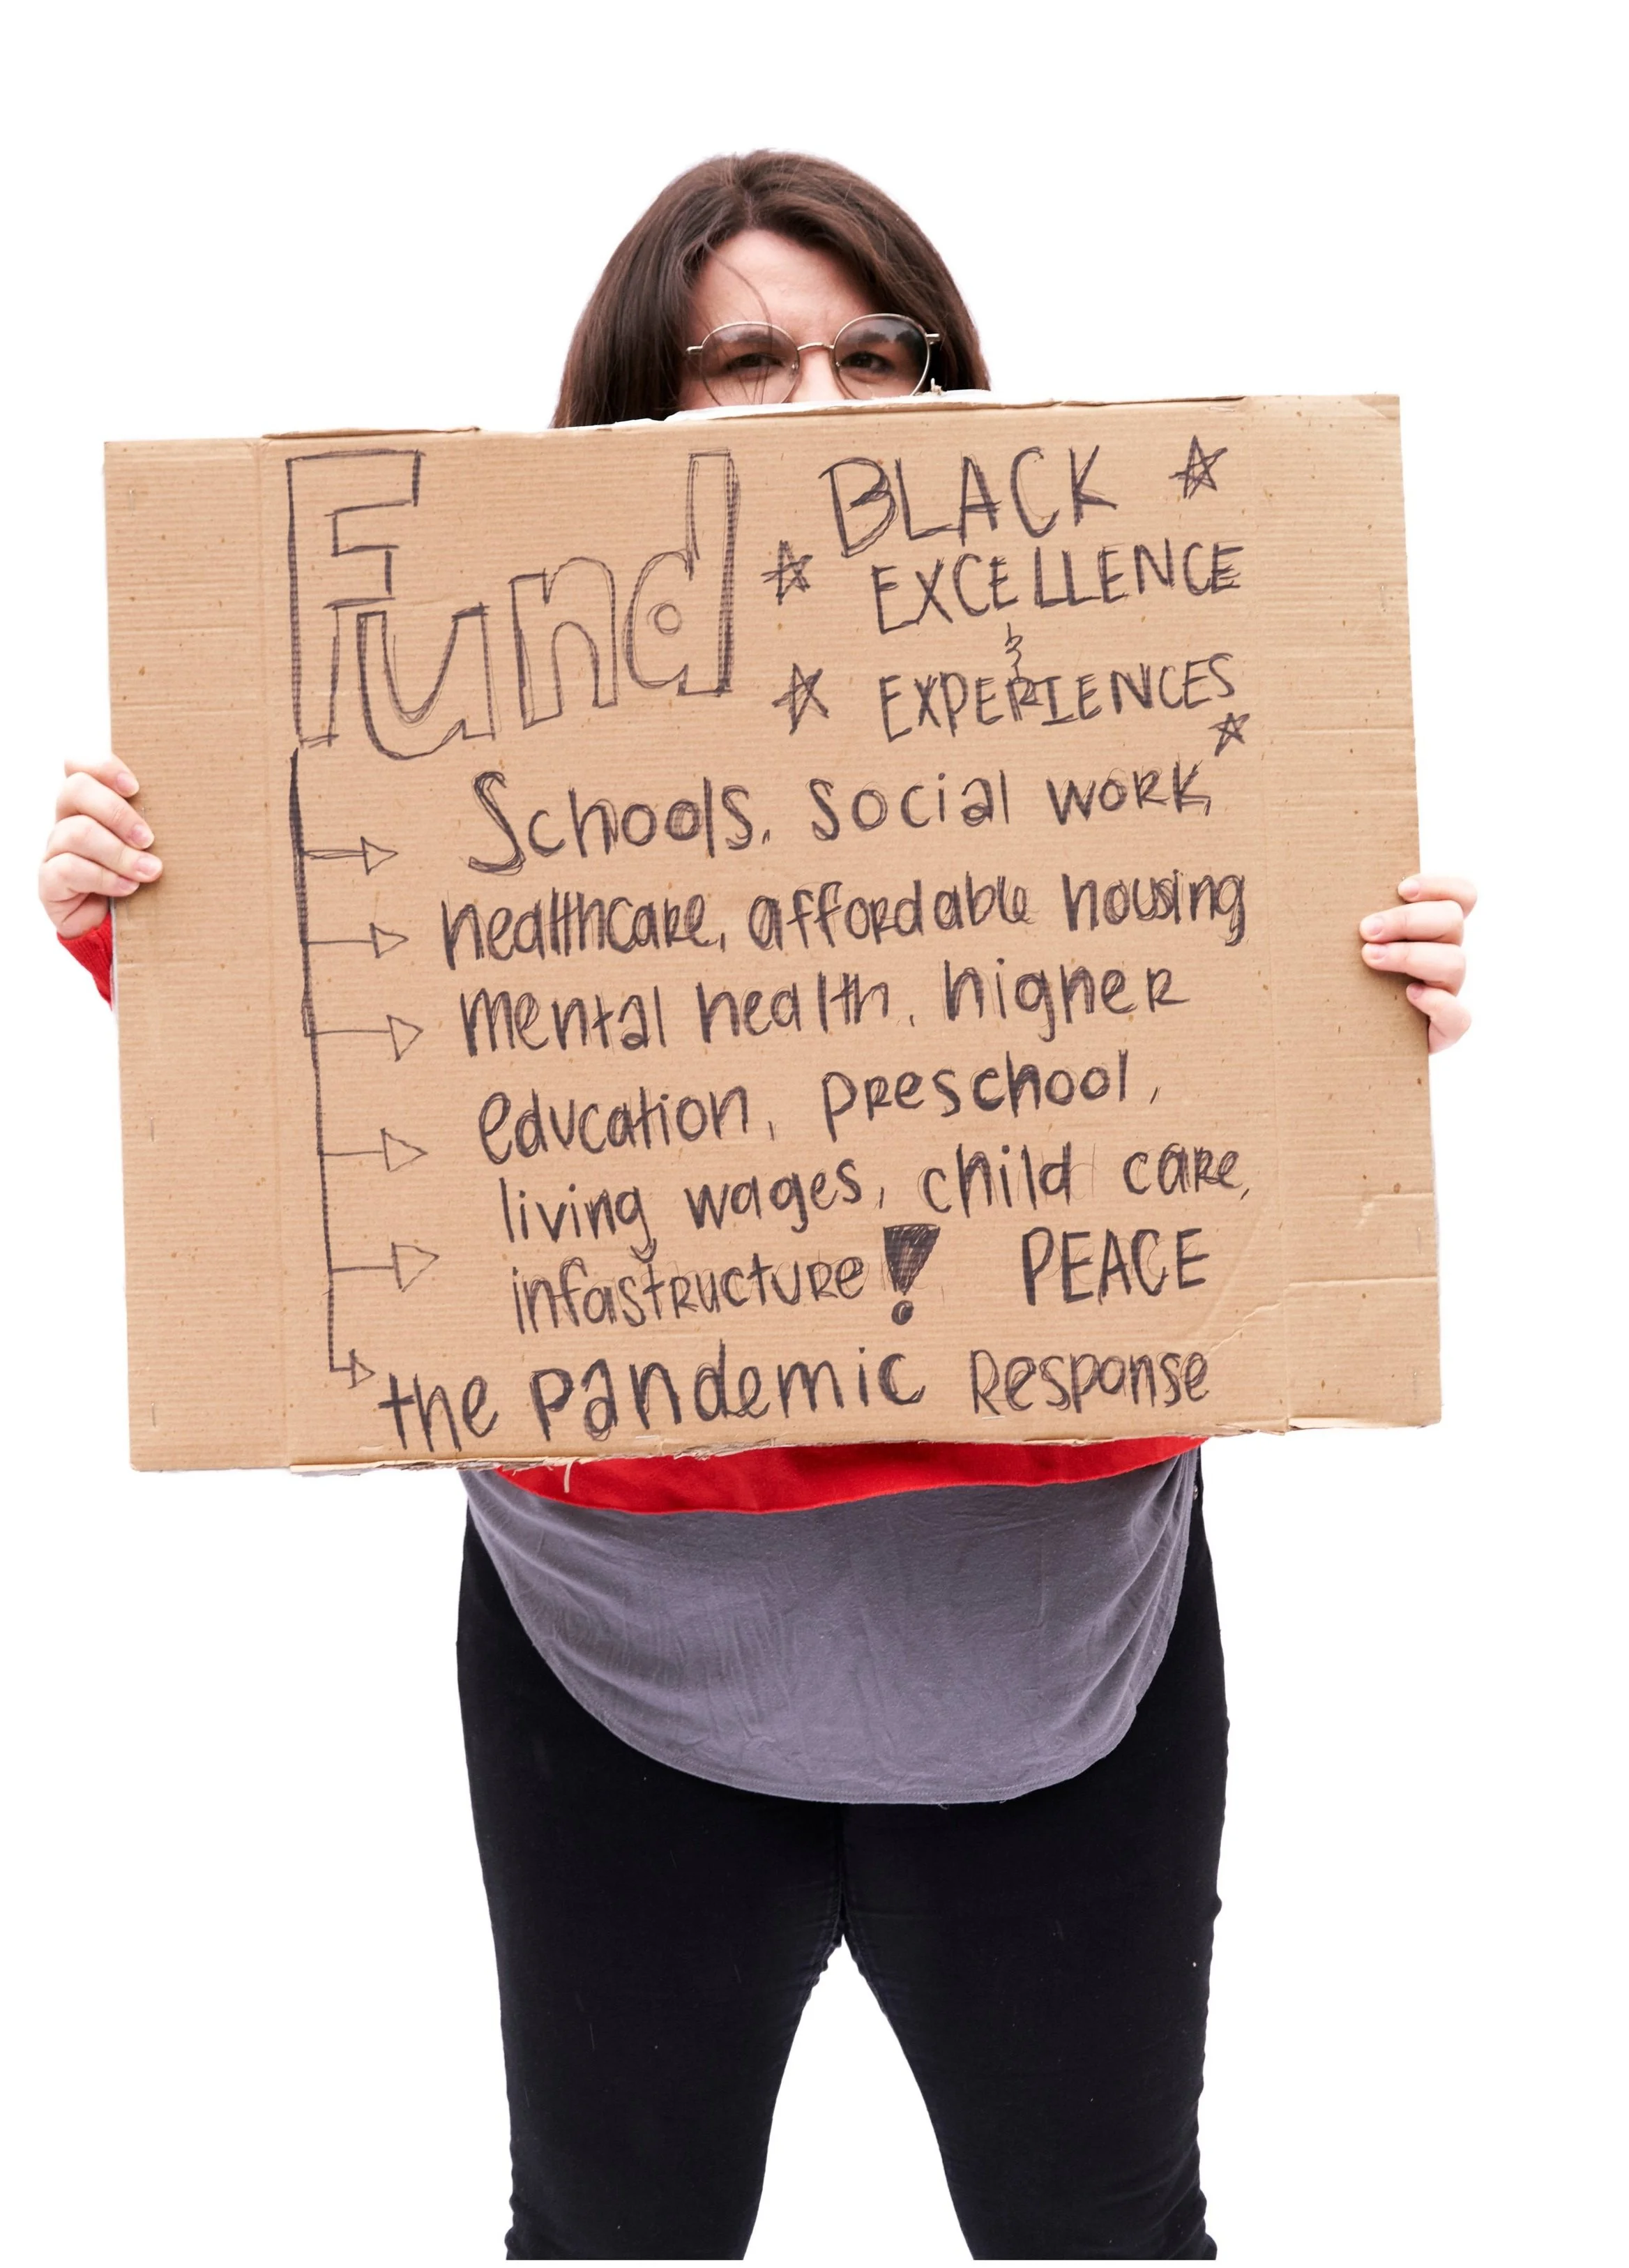 Fund BLACK
EXCELLENCE
&
EXPERIENCES
Schools, social work,
healthcare, affordable housing
mental health, higher
education, preschool,
living wages, child care,
infastructure! PEACE
the pandemic Response